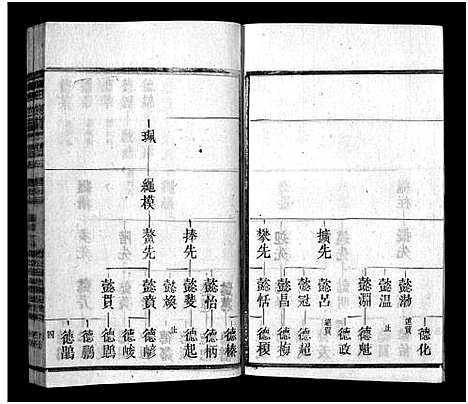 擴先
攀先
懿渤
懿溫
止
懿淵
懿呂
懿冠
懿昌
懿恬
德化
德魁
德政
德超
德梅
德榎
捧先
鰲先
繩模
珮
懿怡
懿斐
懿煥
止
懿賁
懿貫
德榛
德柄
德起
德峻
德鵬
德鵑
四